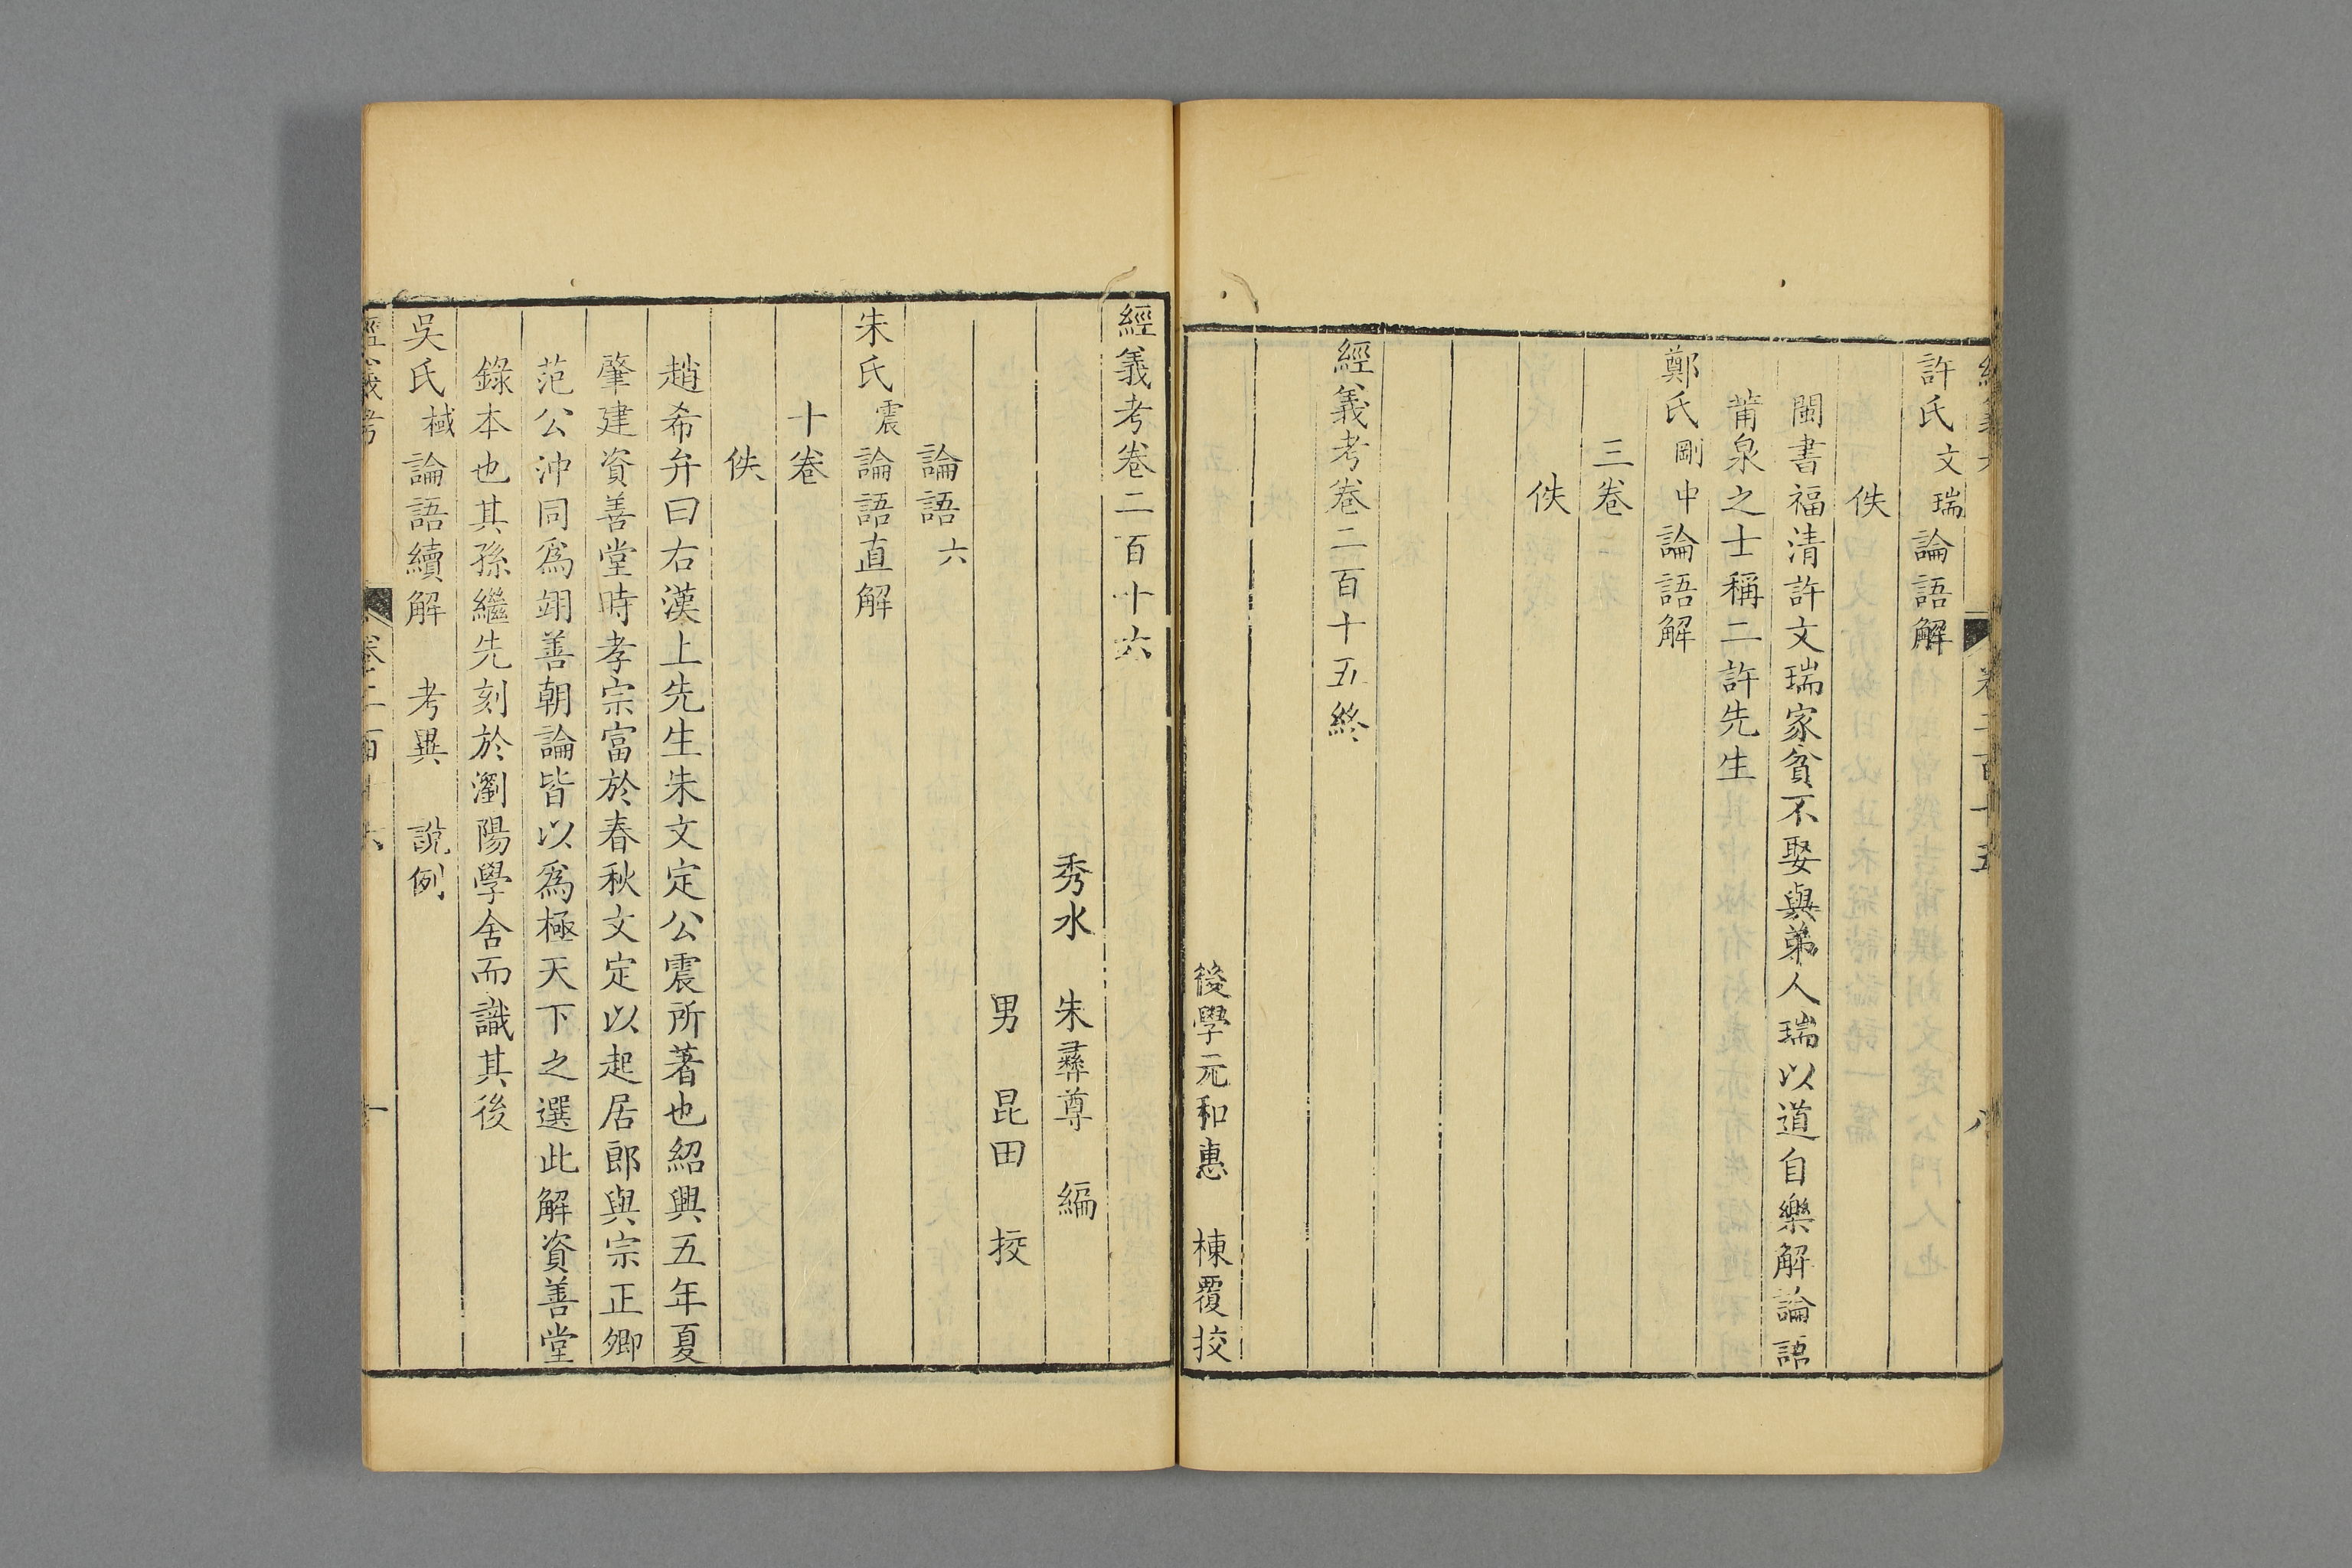 許氏文瑞論語解
佚
閩書福清許文瑞家貧不娶與弟人瑞以道自樂解論語
莆泉之士稱二許先生
鄭氏剛中論語解
三卷
佚
經義考卷二百十五終
後學元和惠 棟覆挍
經義考卷二百十六
秀水 朱彝尊 編
男 昆田 挍
論語六
朱氏震論語直解
十卷
佚
趙希弁曰右漢上先生朱文定公震所著也紹興五年夏
肇建資善堂時孝宗富於春秋文定以起居郎與宗正卿
范公沖同爲翊善朝論皆以爲極天下之選此解資善堂
錄本也其孫繼先刻於瀏陽學舍而識其後
吳氏棫論語續解 考異 說例
經義考 卷二百十六 一